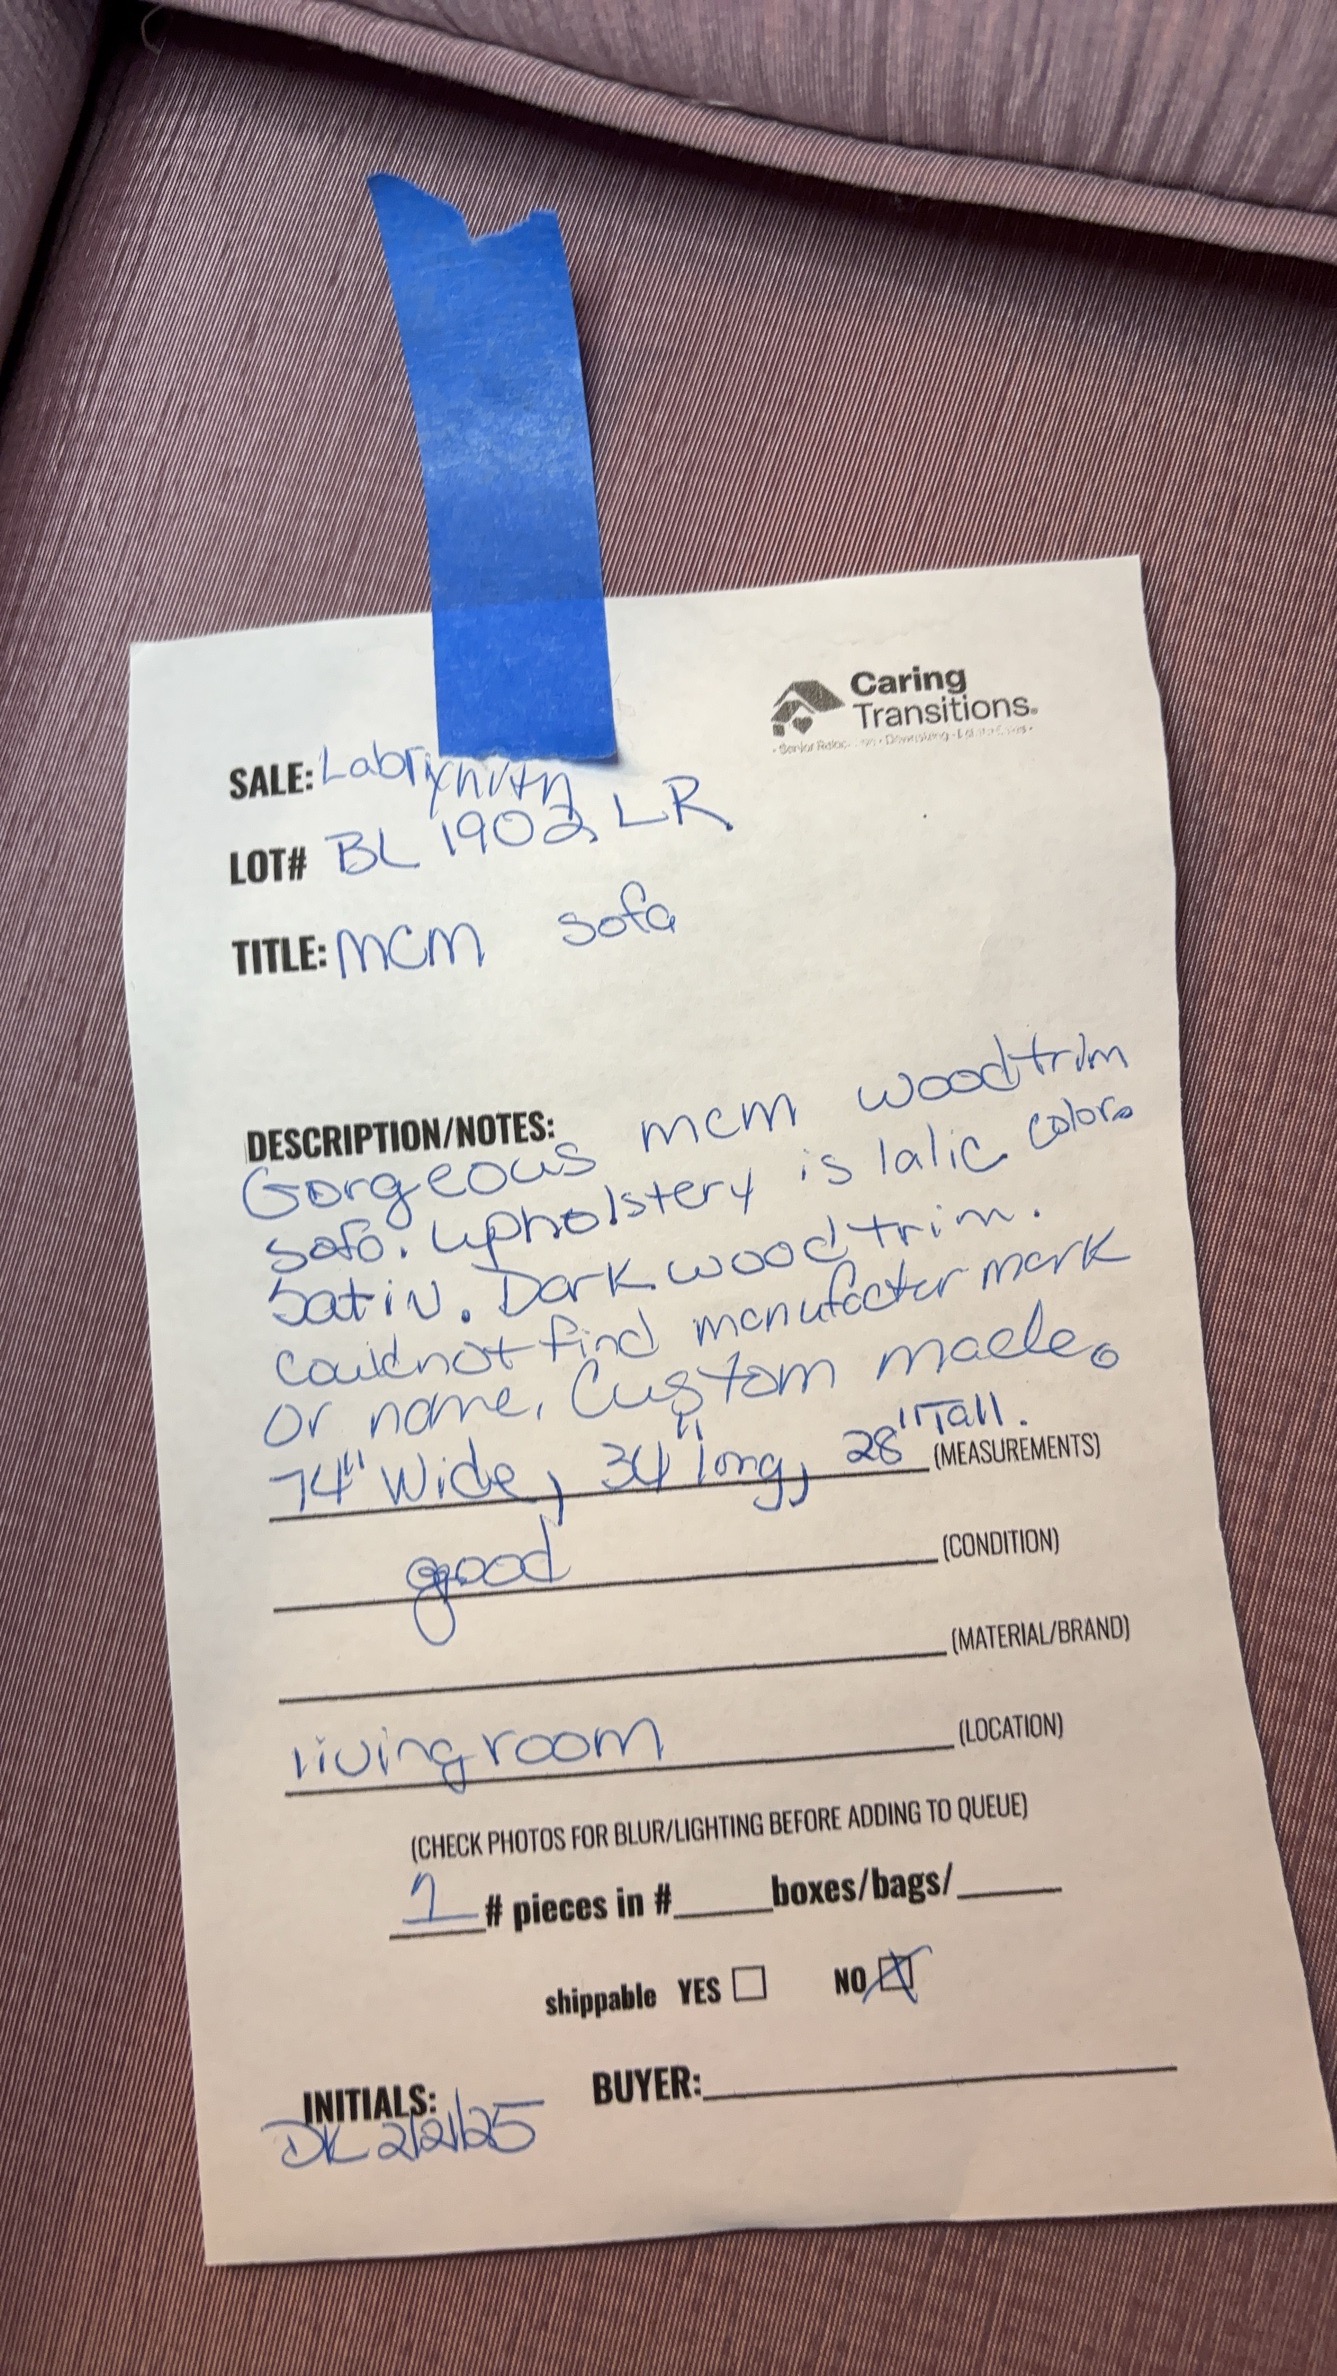 Caring
Transitions.
SALE: Labrynth
LOT# BL 1902 LR
TITLE: MCM sofa
DESCRIPTION/NOTES:
Gorgeous mcm woodtrim
sofa. upholstery is lalic color
satin. Dark wood trim.
Couldnot find manufacter mark
or name. Custom made.
74" Wide, 34" long, 28" Tall. (MEASUREMENTS)
good (CONDITION)
(MATERIAL/BRAND)
livingroom (LOCATION)
(CHECK PHOTOS FOR BLUR/LIGHTING BEFORE ADDING TO QUEUE)
1 # pieces in # boxes/bags/
shippable YES ☐ NO ☒
INITIALS: BUYER:
DK 2/2/25